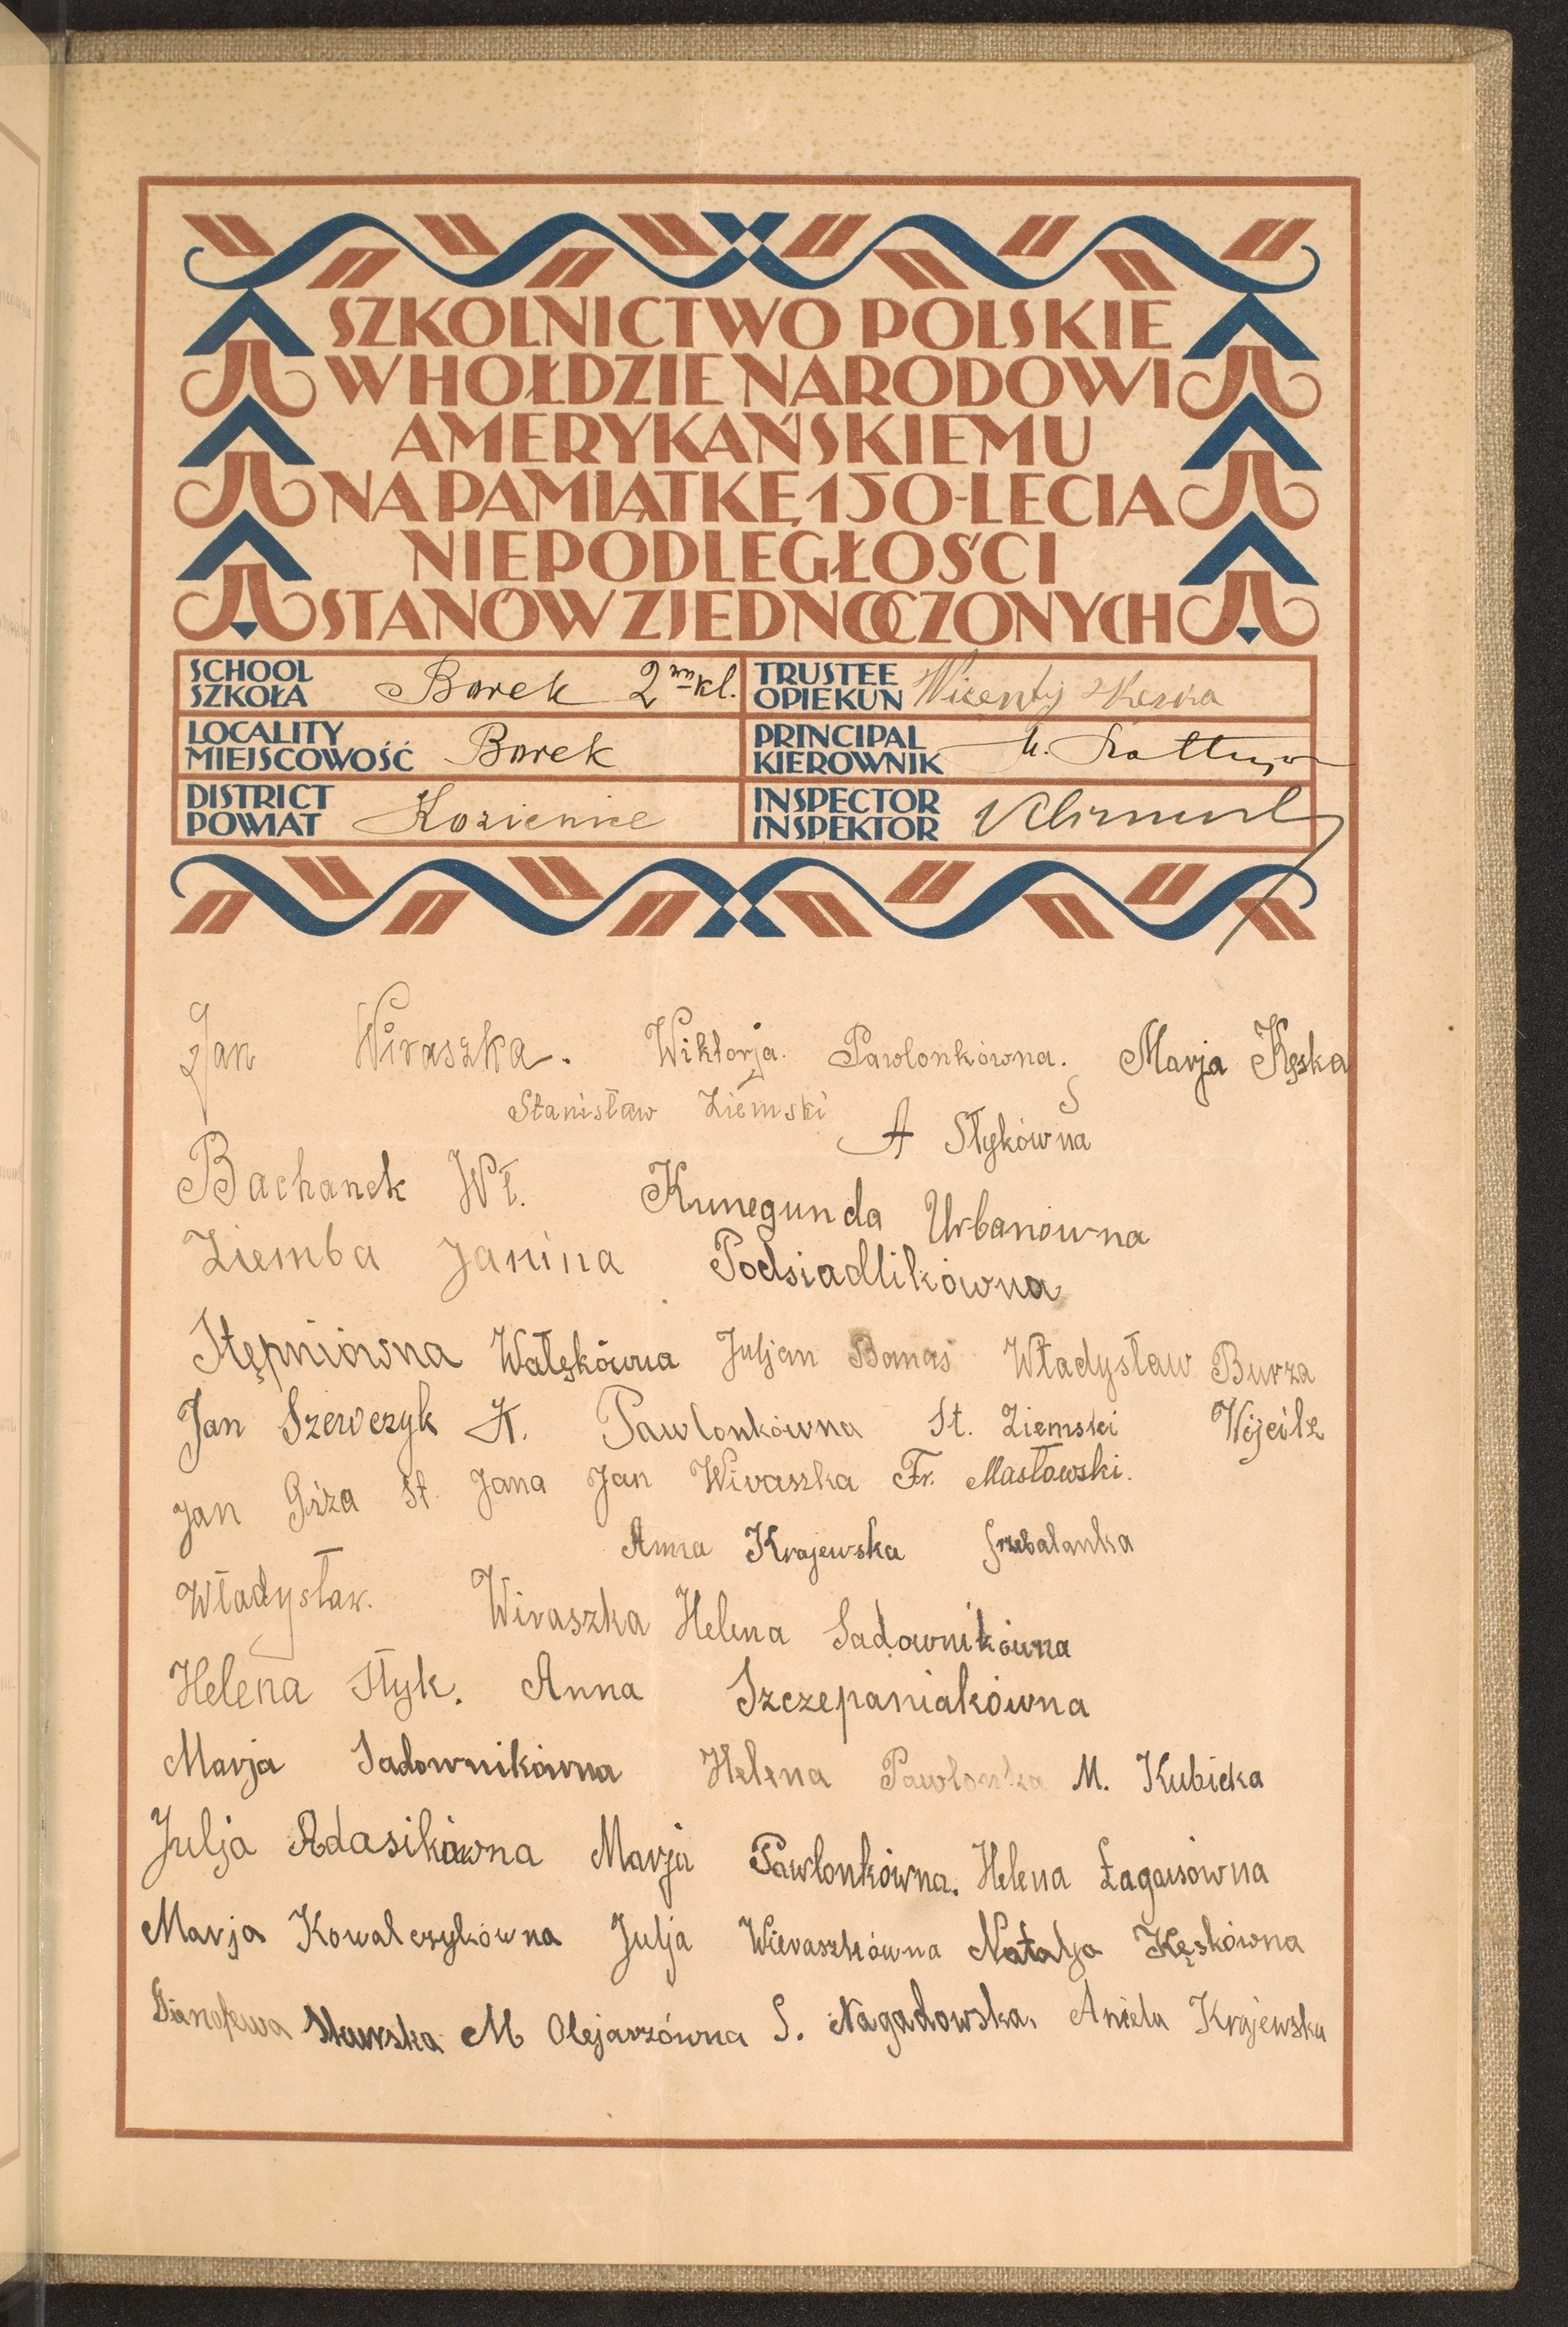 SZKOLNICTWO POLSKIE
W HOŁDZIE NARODOWI
AMERYKAŃSKIEMU
NA PAMIĄTKĘ 150-LECIA
NIEPODLEGŁOŚCI
STANÓW ZJEDNOCZONYCH
SCHOOL
SZKOŁA Borek 2 kl.
TRUSTEE
OPIEKUN Wicenty
LOCALITY
MIEJSCOWOŚĆ Borek
PRINCIPAL
KIEROWNIK
DISTRICT
POWIAT Kozienice
INSPECTOR
INSPEKTOR
Jan Wiraszka. Wiktorja. Pawlonkówna. Marja Kęska
Stanisław Ziemski S
A Stykówna
Bachanek Wł. Kunegunda Urbanówna
Ziemba Janina Podsiadlikówna
Stępniówna Wałękówna Juljan Banaś Władysław Burza
Jan Szewczyk K. Pawlonkówna St. Ziemski
Jan Giża St. Jana Jan Wiraszka Fr. Masłowski.
Anna Krajewska
Władysław. Wiraszka Helena Sadownikówna
Helena Styk. Anna Szczepaniakówna
Marja Sadownikówna Helena Pawlonka M. Kubicka
Julja Adasikówna Marja Pawlonkówna. Helena Łagaisówna
Marja Kowalczykówna Julja Wieraszkówna Natalja Kęskówna
M Olejarzówna S. Nagadowska. Aniela Krajewska